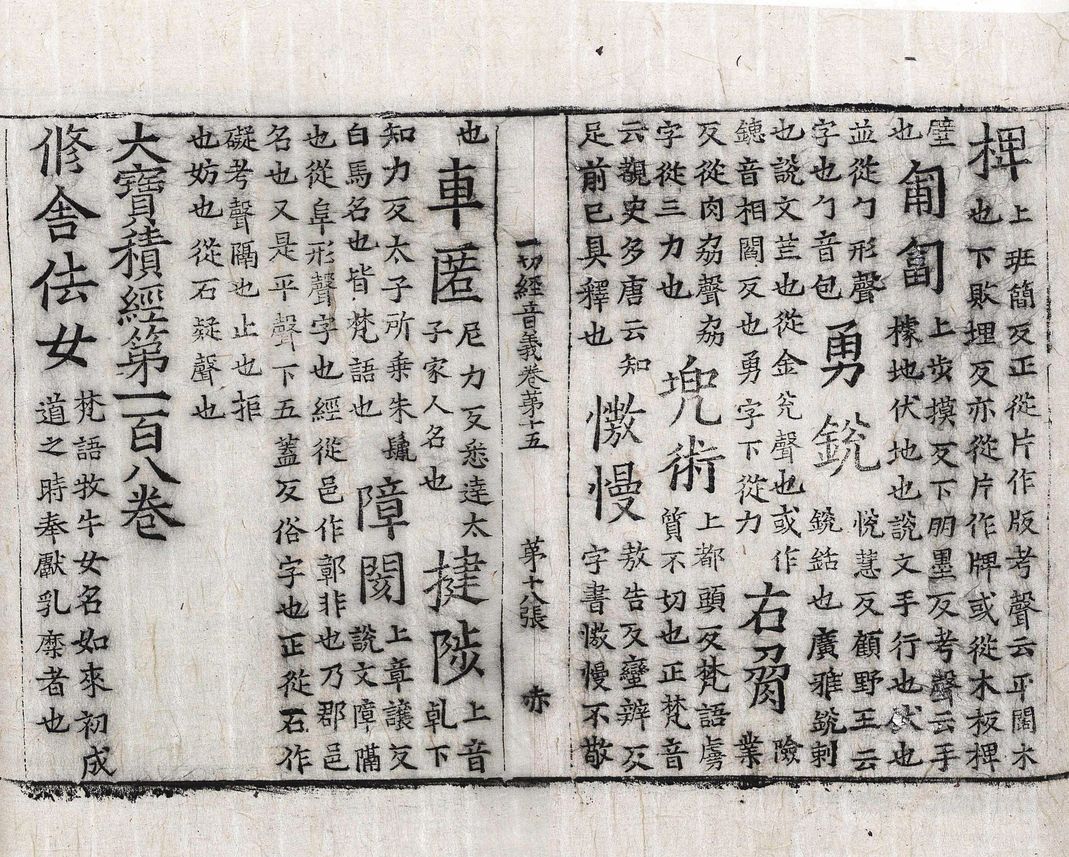 椑 上班簡反正從片作版考聲云平闊木
也下敗埋反亦從片作牌或從木板椑
璧
也 匍匐 上步摸反下朋墨反考聲云手
據地伏地也說文手行也伏也
並從勹形聲
字也勹音包 勇銳 悅慧反顧野王云
銳銛也廣雅銳剌
也說文芒也從金兊聲也或作
鏸音相閻反也勇字下從力 右脅 險
業
反從肉劦聲劦
字從三力也 兜術 上都頭反梵語虜
質不切也正梵音
云覩史多唐云知
足前已具釋也 憿慢 敖告反蠻辨反
字書憿慢不敬
一切經音義卷苐十五 苐十八張 赤
也 車匿 尼力反悉達太
子家人名也 揵陟 上音
乹下
知力反太子所乗朱鬣
白馬名也皆梵語也 障閡 上章讓反
說文障隔
也從阜形聲字也經從邑作鄣非也乃郡邑
名也又是平聲下五蓋反俗字也正從石作
礙考聲隔也止也拒
也妨也從石疑聲也
大寶積經第一百八卷
修舍佉女 梵語牧牛女名如來初成
道之時奉獻乳糜者也